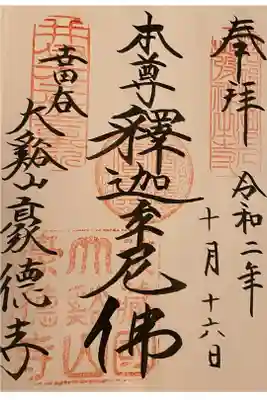 奉拝
令和二年
十月十六日
本尊釋迦牟尼佛
世田谷
大谿山豪德寺